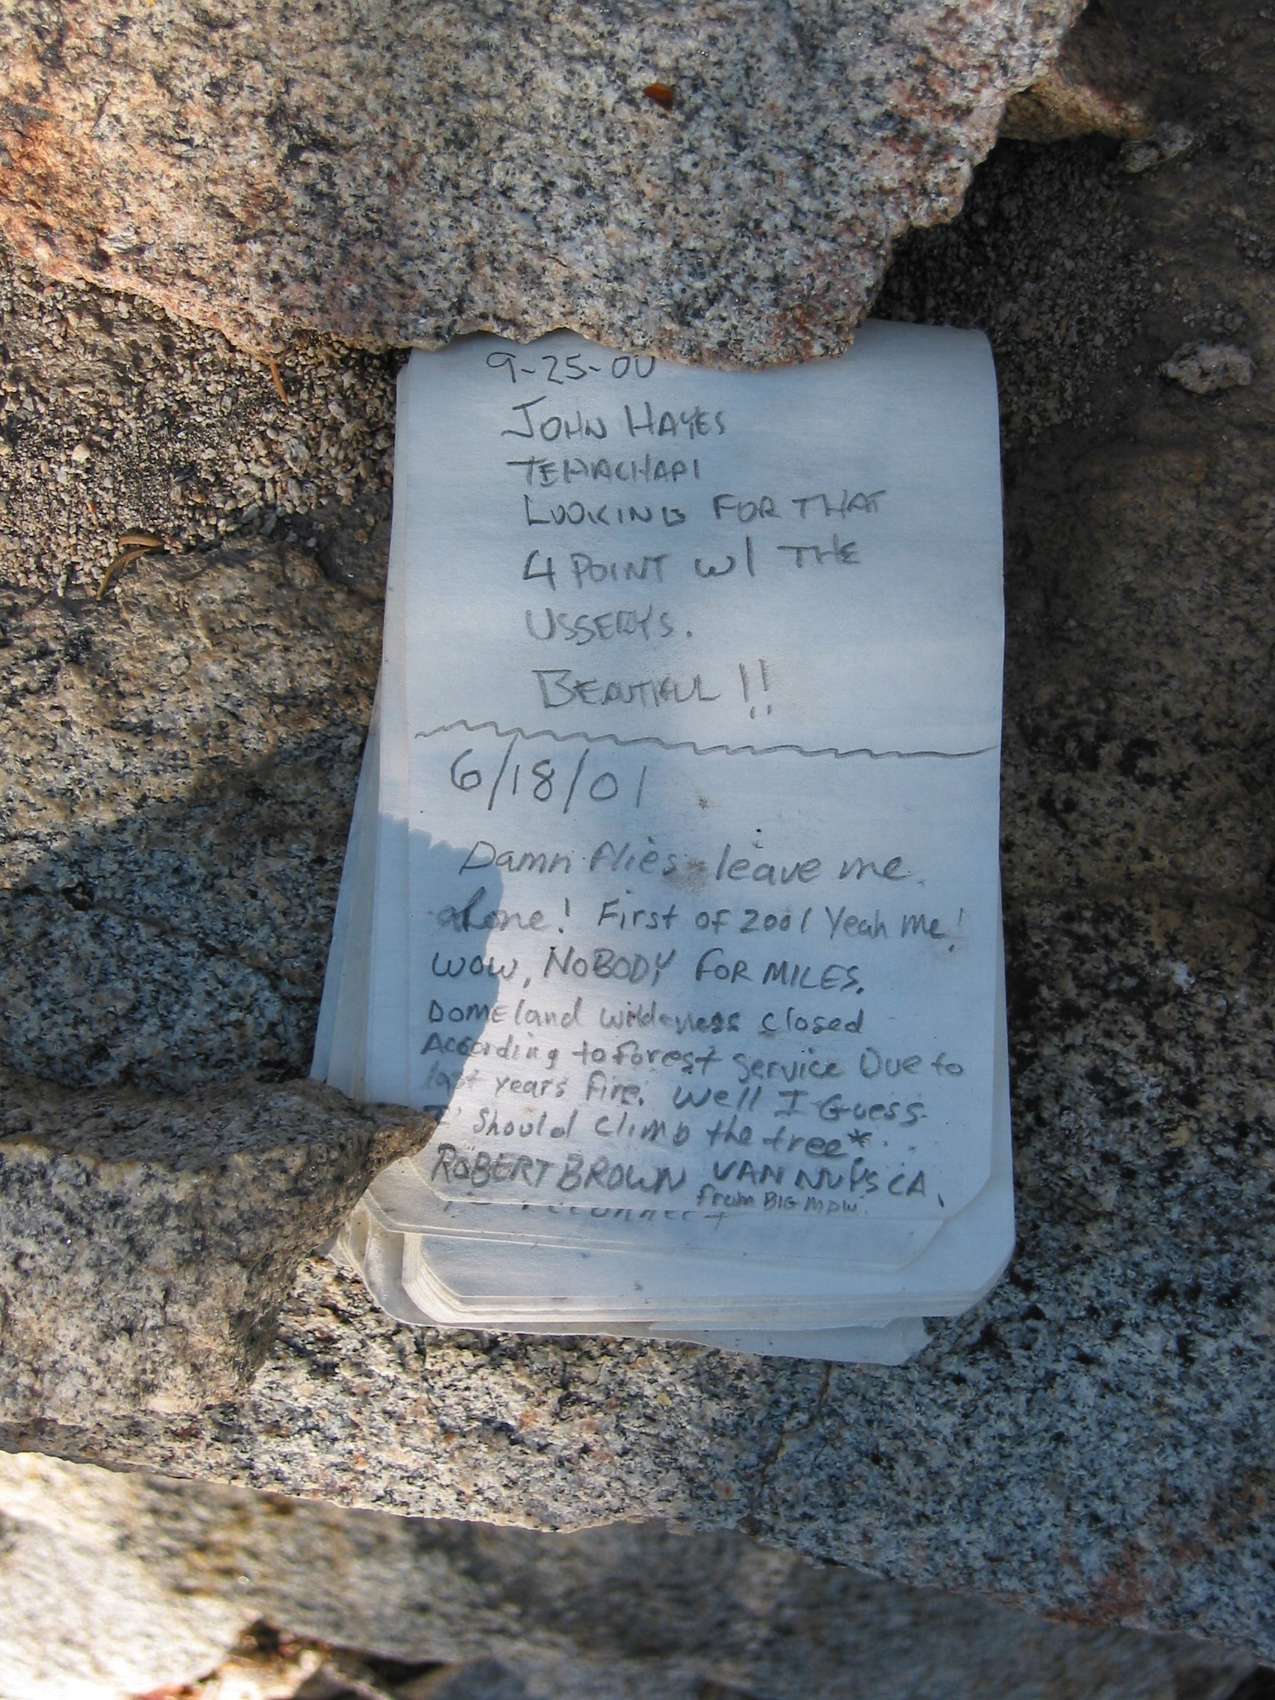 9-25-00
JOHN HAYES
TEHACHAPI
LOOKING FOR THAT
4 POINT W/ THE
USSERYS.
BEAUTIFUL !!
6/18/01
Damn flies - leave me
alone! First of 2001 Yeah me!
WOW, NOBODY FOR MILES.
Domeland wilderness closed
According to forest service Due to
last years fire. Well I Guess
I should climb the tree*.
ROBERT BROWN VAN NUYS CA,
from BIG MDW.